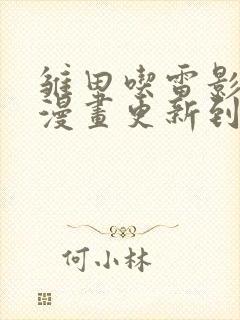 雏田喫雷影
漫畫更新到
何小林